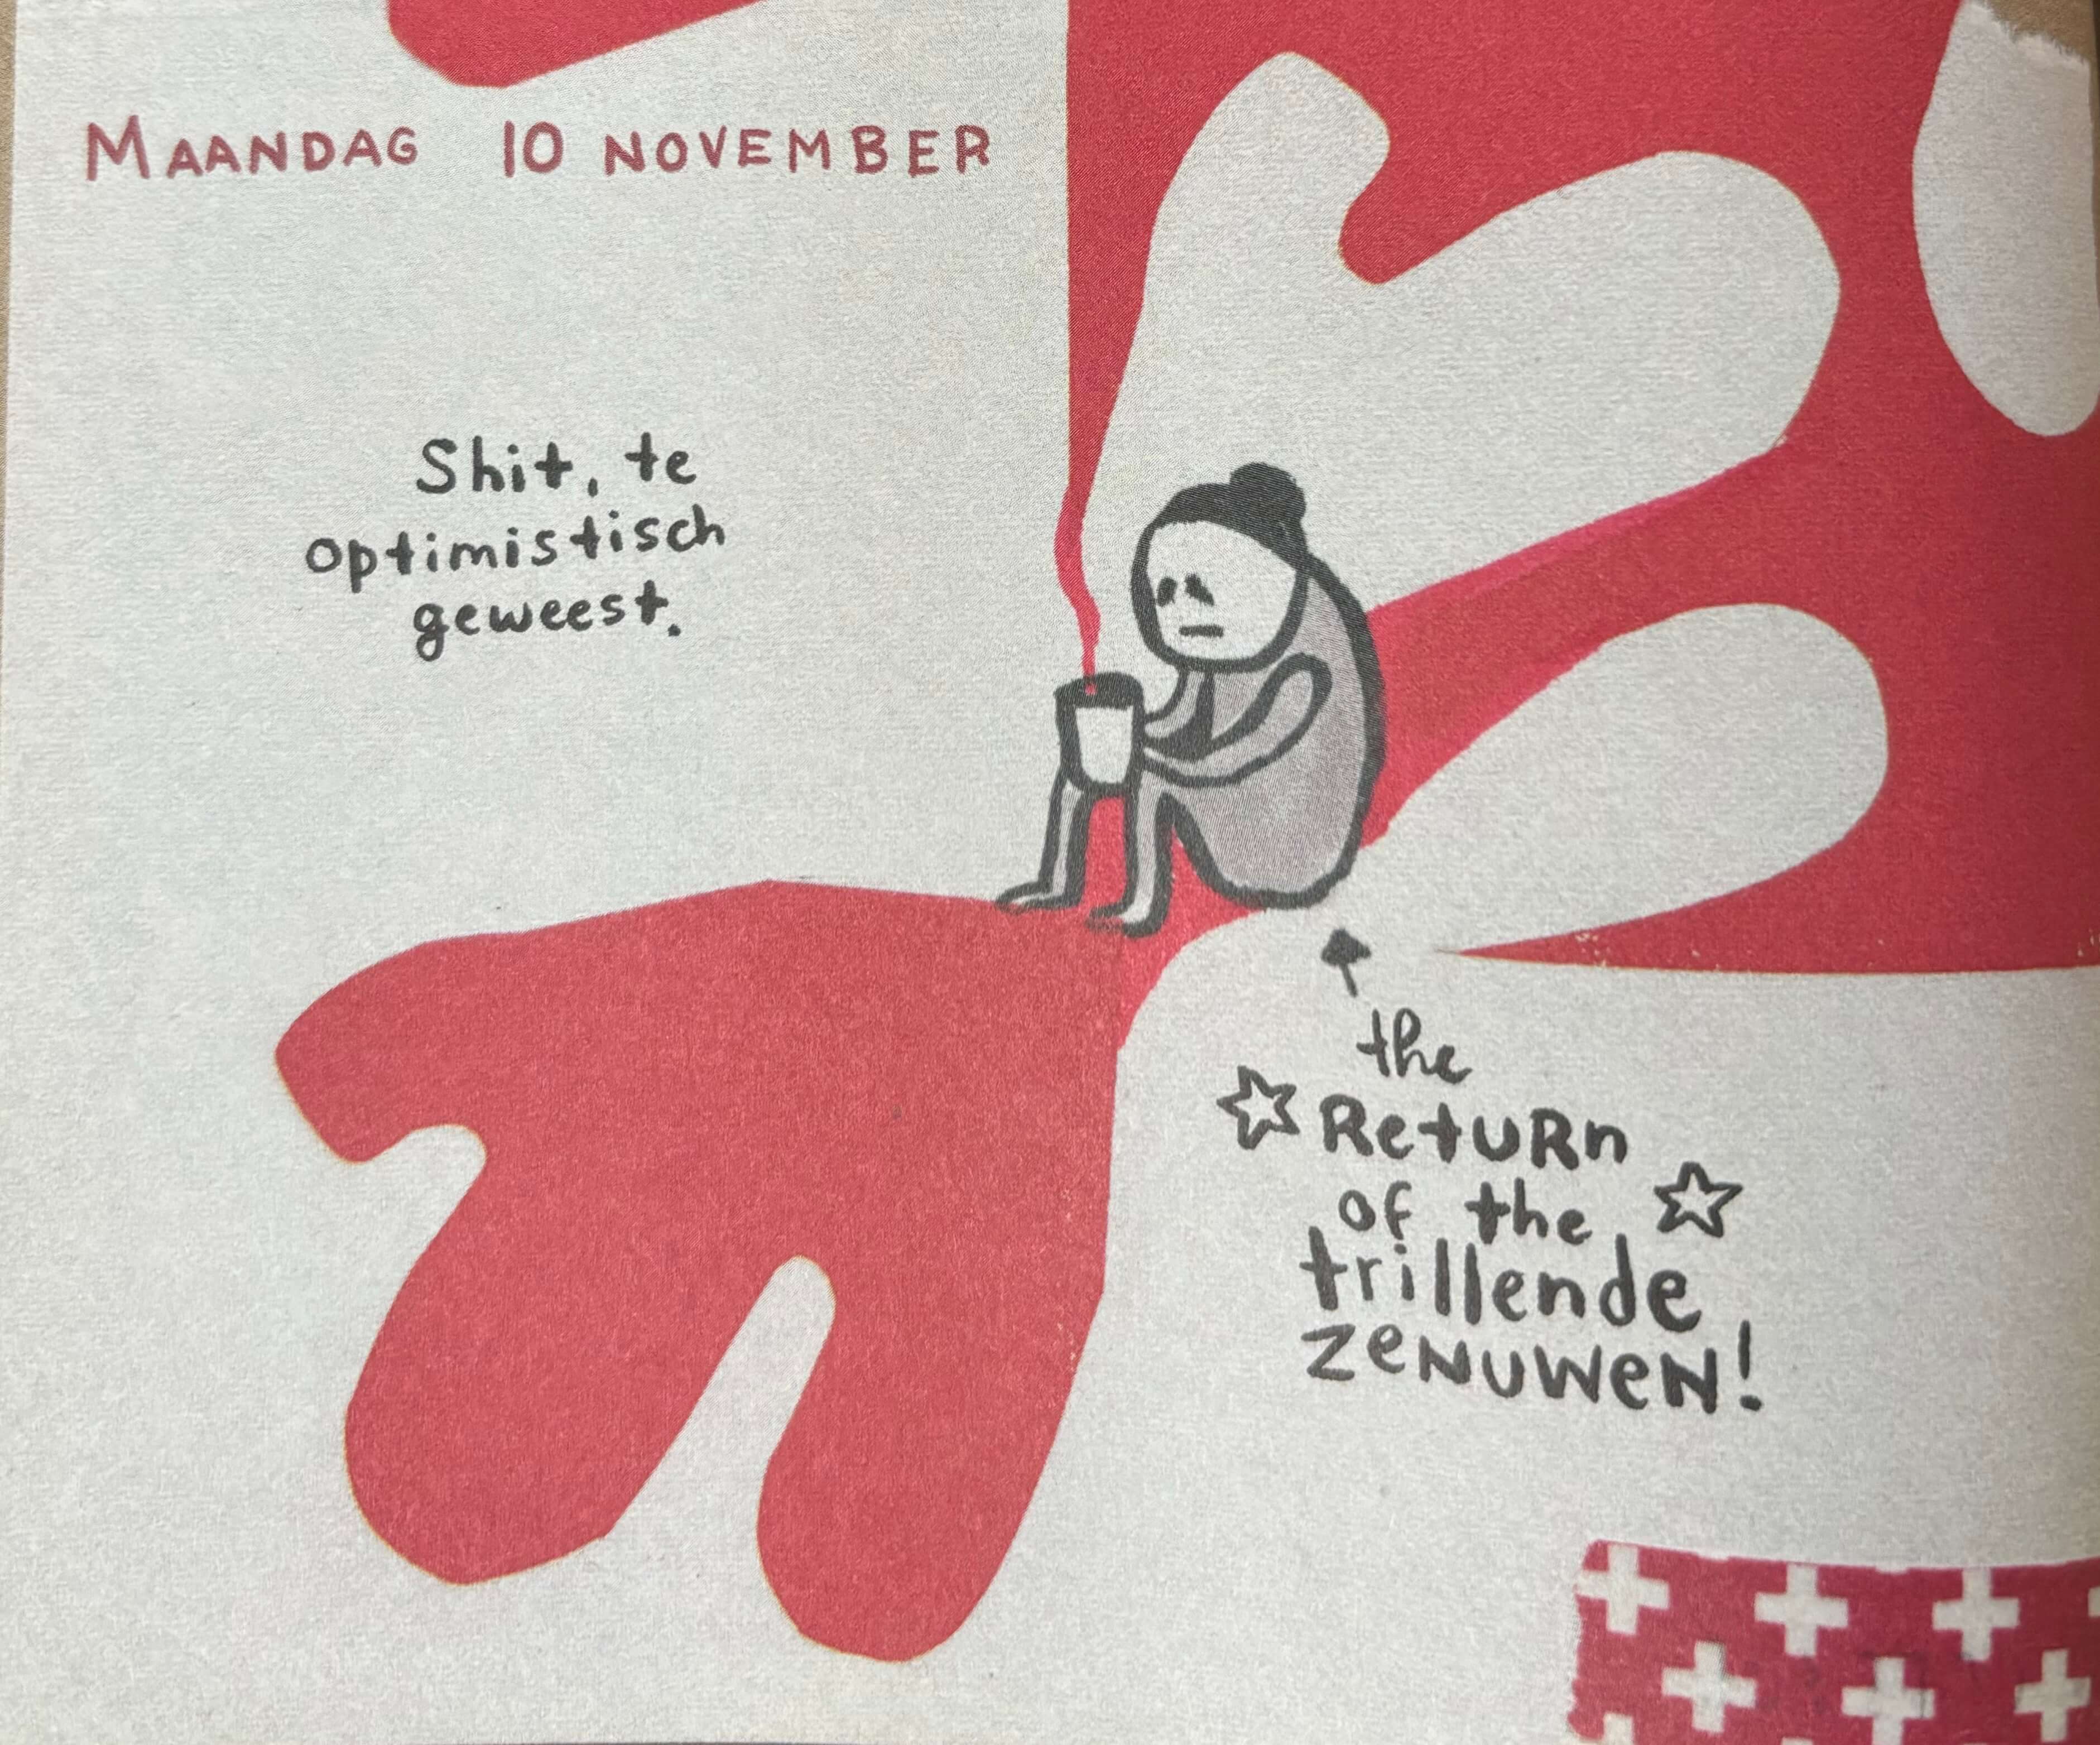 MAANDAG 10 NOVEMBER
Shit, te
optimistisch
geweest.
the
RetuRn
of the
trillende
zeNuweN!